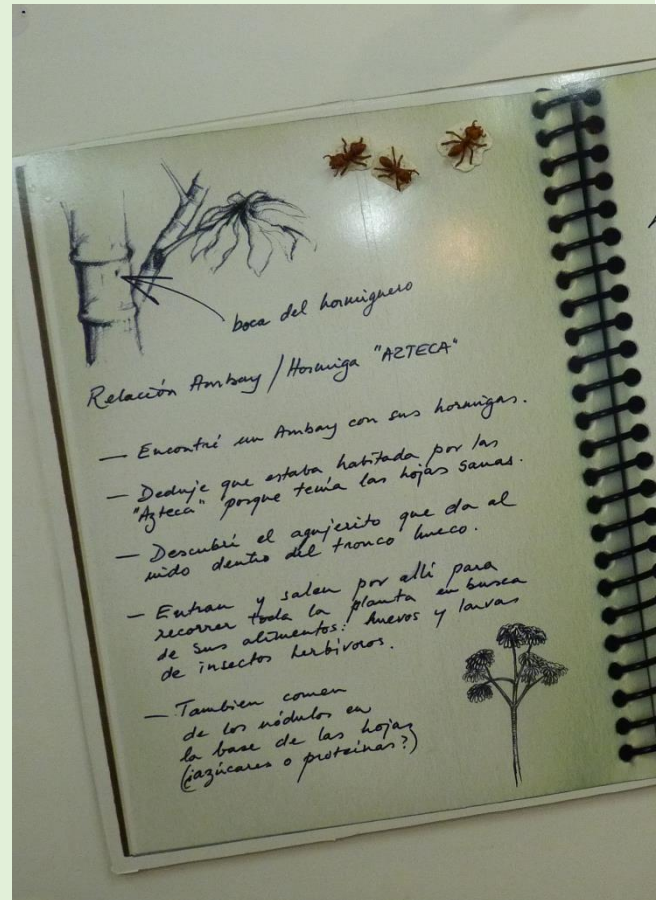 boca del hormiguero
Relación Ambay / Hormiga "AZTECA"
— Encontré un Ambay con sus hormigas.
— Deduje que estaba habitada por las
"Azteca" porque tenía las hojas sanas.
— Descubrí el agujerito que da al
nido dentro del tronco hueco.
— Entran y salen por allí para
recorrer toda la planta en busca
de sus alimentos: huevos y larvas
de insectos herbívoros.
— Tambien comen
de los nódulos en
la base de las hojas
(¿azúcares o proteínas?)